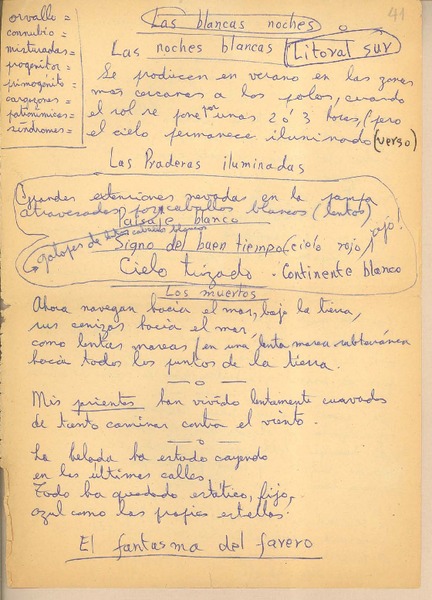 41
orvalle =
connubio =
misturadas =
progenitor =
primogénito =
patronímicos =
síndromes =
Las blancas noches o
Las noches blancas Litoral sur
Se producen en verano en las zonas
mas cercanas a los polos, cuando
el sol se pone por unas 2 ó 3 horas, (pero
el cielo permanece iluminado (verso)
Las Praderas iluminadas
Grandes extensiones nevadas en la pampa
atravesadas por caballos blancos (lentos)
galopes de caballos blancos
Signo del buen tiempo: cielo rojo, ¡ajo!
Cielo tizado - Continente blanco
Los muertos
Ahora navegan hacia el mar, bajo la tierra,
sus cenizas hacia el mar,
como lentas mareas / en una lenta marea subterránea
hacia todos los puntos de la tierra.
— o —
Mis parientes han vivido lentamente curvados
de tanto caminar contra el viento.
— o —
La helada ha estado cayendo
en las últimas calles,
Todo ha quedado estático, fijo,
azul como las propias estrellas.
El fantasma del farero